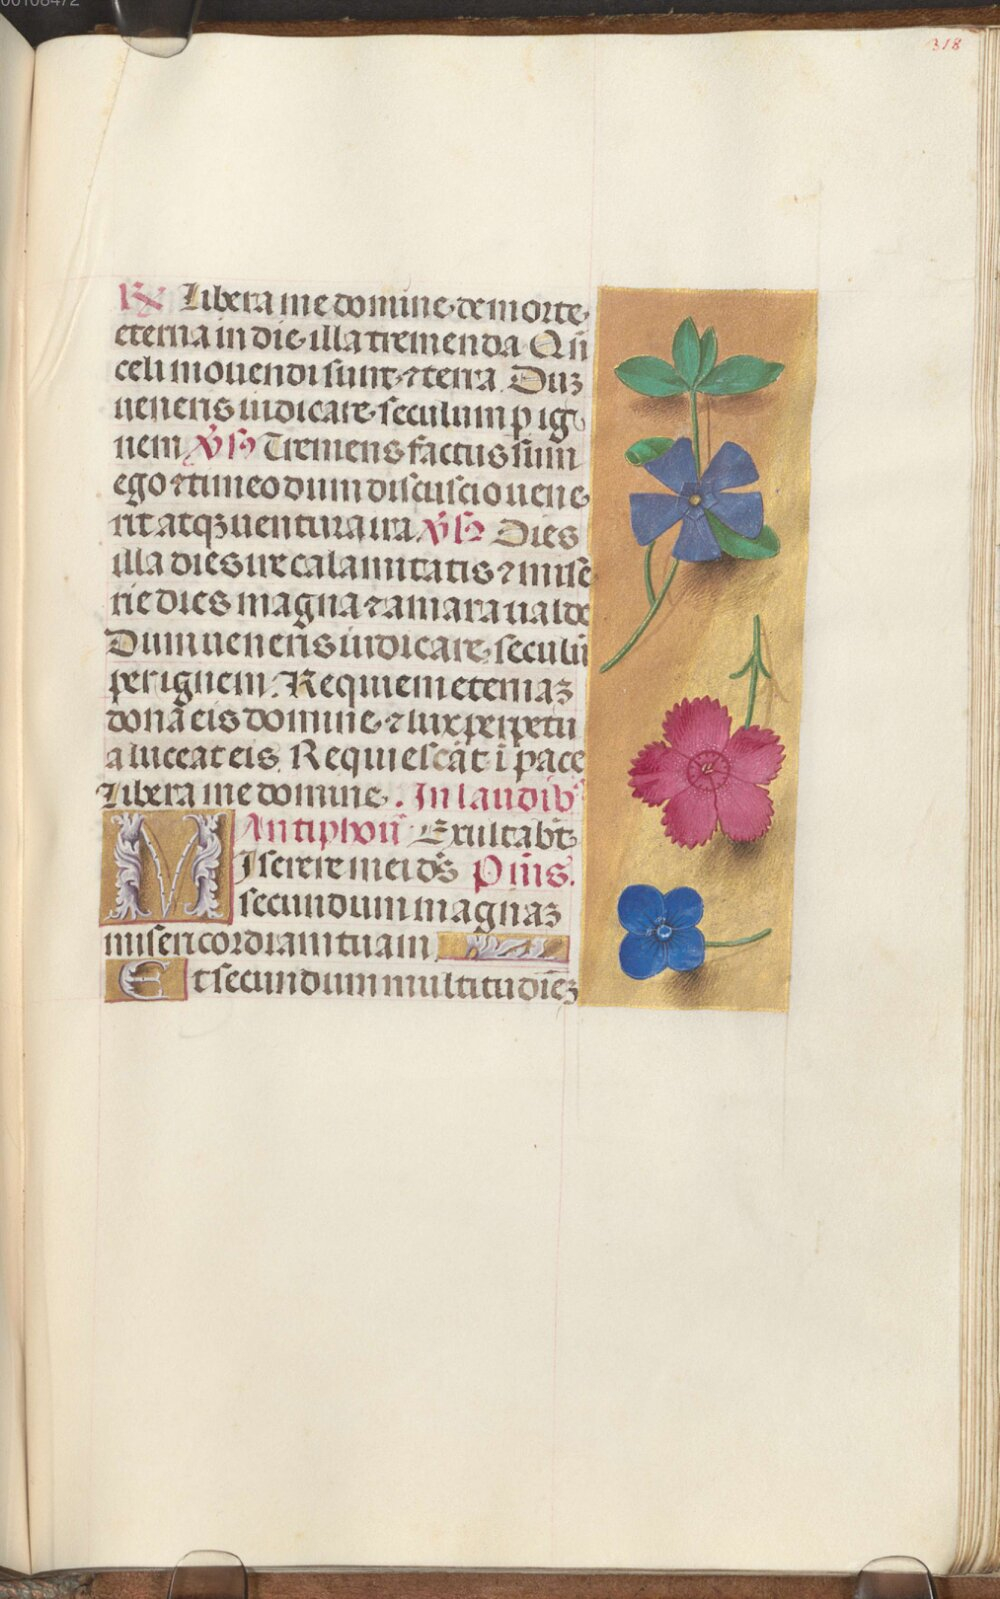 00108472
318
R Libera me domine de morte
eterna in die illa tremenda Qñ
celi mouendi sunt ⁊ terra. Duꝫ
ueneris iudicare seculum p ig
nem Vs Tremens factus sum
ego ⁊ timeo dum discuscio uene
rit atqꝫ uentura ira Vs Dies
illa dies ire calamitatis ⁊ mise
rie dies magna ⁊ amara ualde
Dum ueneris iudicare seculū
per ignem. Requiem eternaꝫ
donā eis domine ⁊ lux perpetu
a luceat eis. Requiescāt ī pace
Libera me domine. In laudib
Antiphoñ Exultabt
Miserere mei ds̄ Pm̄s.
secundum magnaꝫ
misericordiam tuam
Et secundum multitudiēꝫ